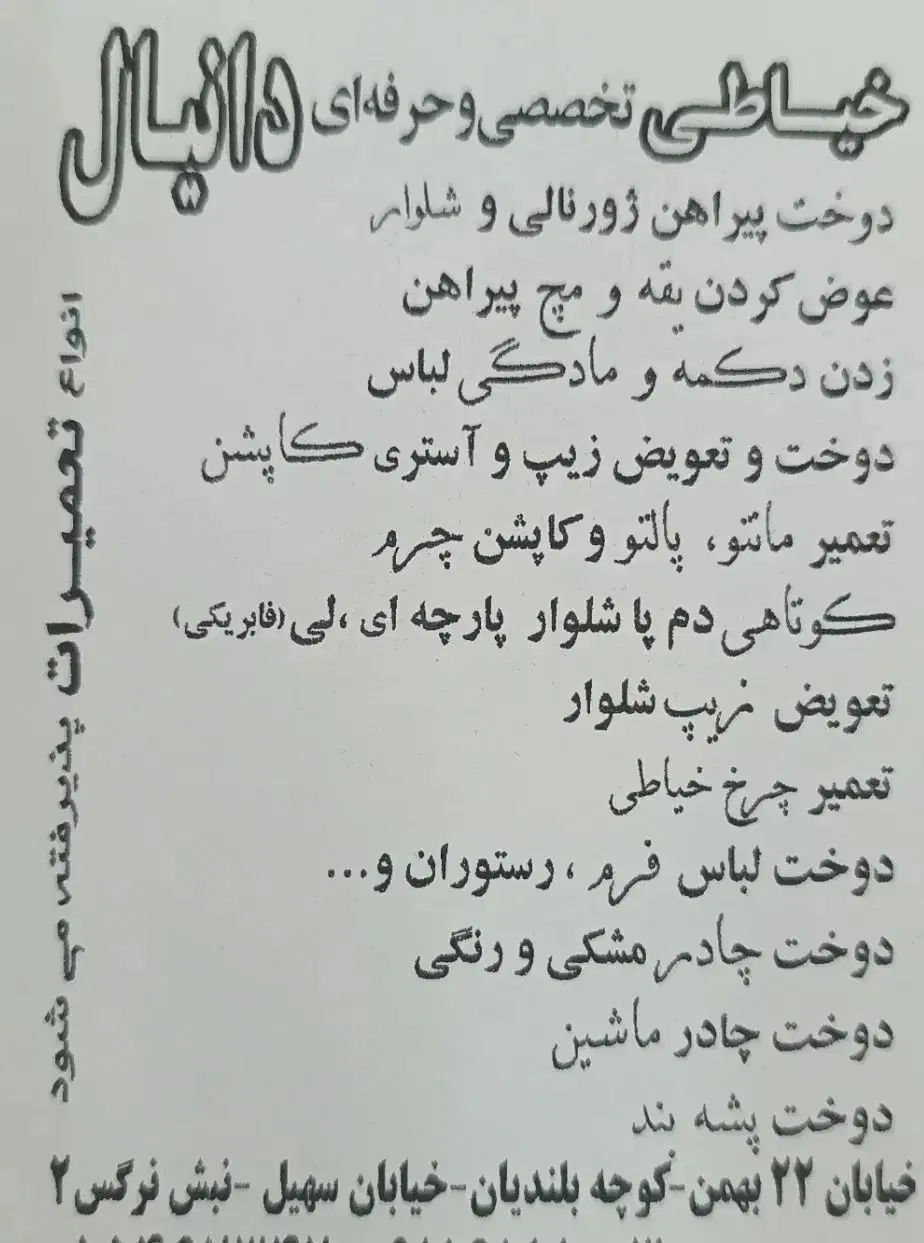 خیاطی تخصصی و حرفه‌ای دانیال
دوخت پیراهن ژورنالی و شلوار
عوض کردن یقه و مچ پیراهن
زدن دکمه و مادگی لباس
دوخت و تعویض زیپ و آستری کاپشن
تعمیر مانتو، پالتو و کاپشن چرم
کوتاهی دم پا شلوار پارچه ای ،لی (فابریکی)
تعویض زیپ شلوار
تعمیر چرخ خیاطی
دوخت لباس فرم ، رستوران و...
دوخت چادر مشکی و رنگی
دوخت چادر ماشین
دوخت پشه بند
انواع تعمیرات پذیرفته می شود
خیابان ۲۲ بهمن-کوچه بلندیان-خیابان سهیل -نبش نرگس ۲